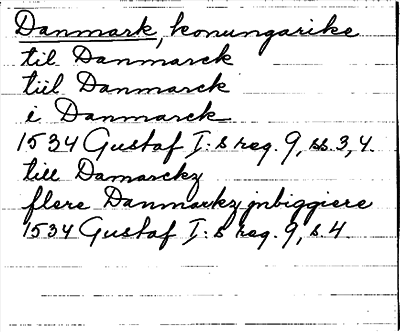 Danmark, konungarike
til Danmarck
tiil Danmarck
i Danmarck
1534 Gustaf I:s reg. 9, ss. 3, 4.
till Damarckz
flere Danmarkz jnbiggiere
1534 Gustaf I:s reg. 9, s. 4